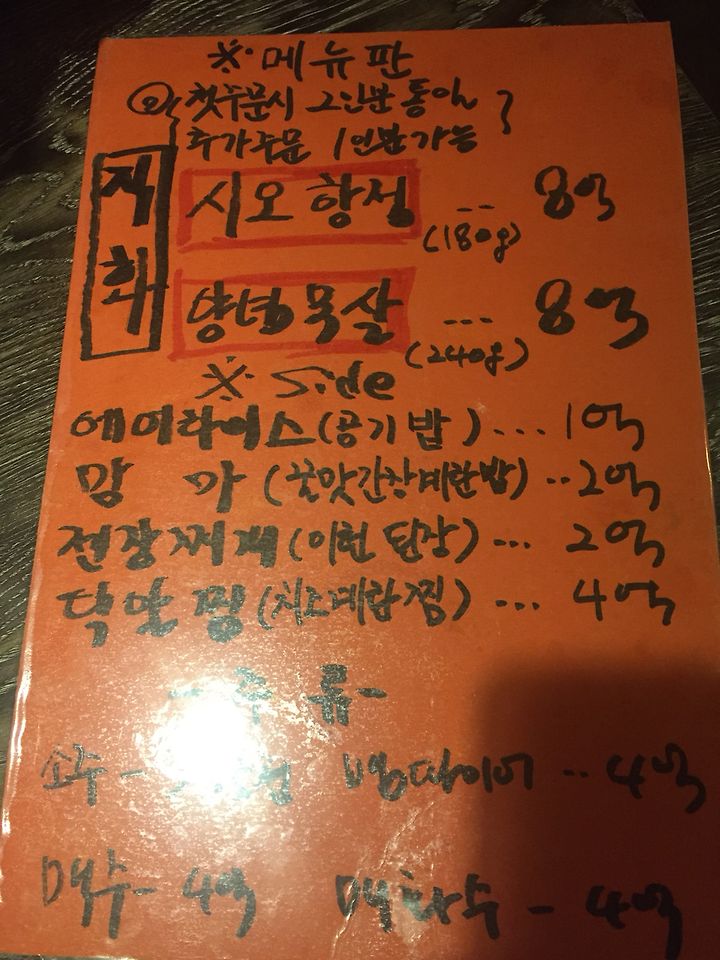 ※ 메뉴판
첫주문시 2인분 통일
추가주문 1인분 가능
직화
시오 항정 --- 8억
(180g)
양념목살 --- 8억
(240g)
※ Side
에이라이스 (공기밥) ... 1억
망가 (꿀맛간장계란밥) .. 2억
전장찌개 (이천 된장) ... 2억
닭알찜 (치즈계란찜) ... 4억
-주류-
소주 -
뱀딱이어 .. 4억
맥수 - 4억
매화수 - 4억